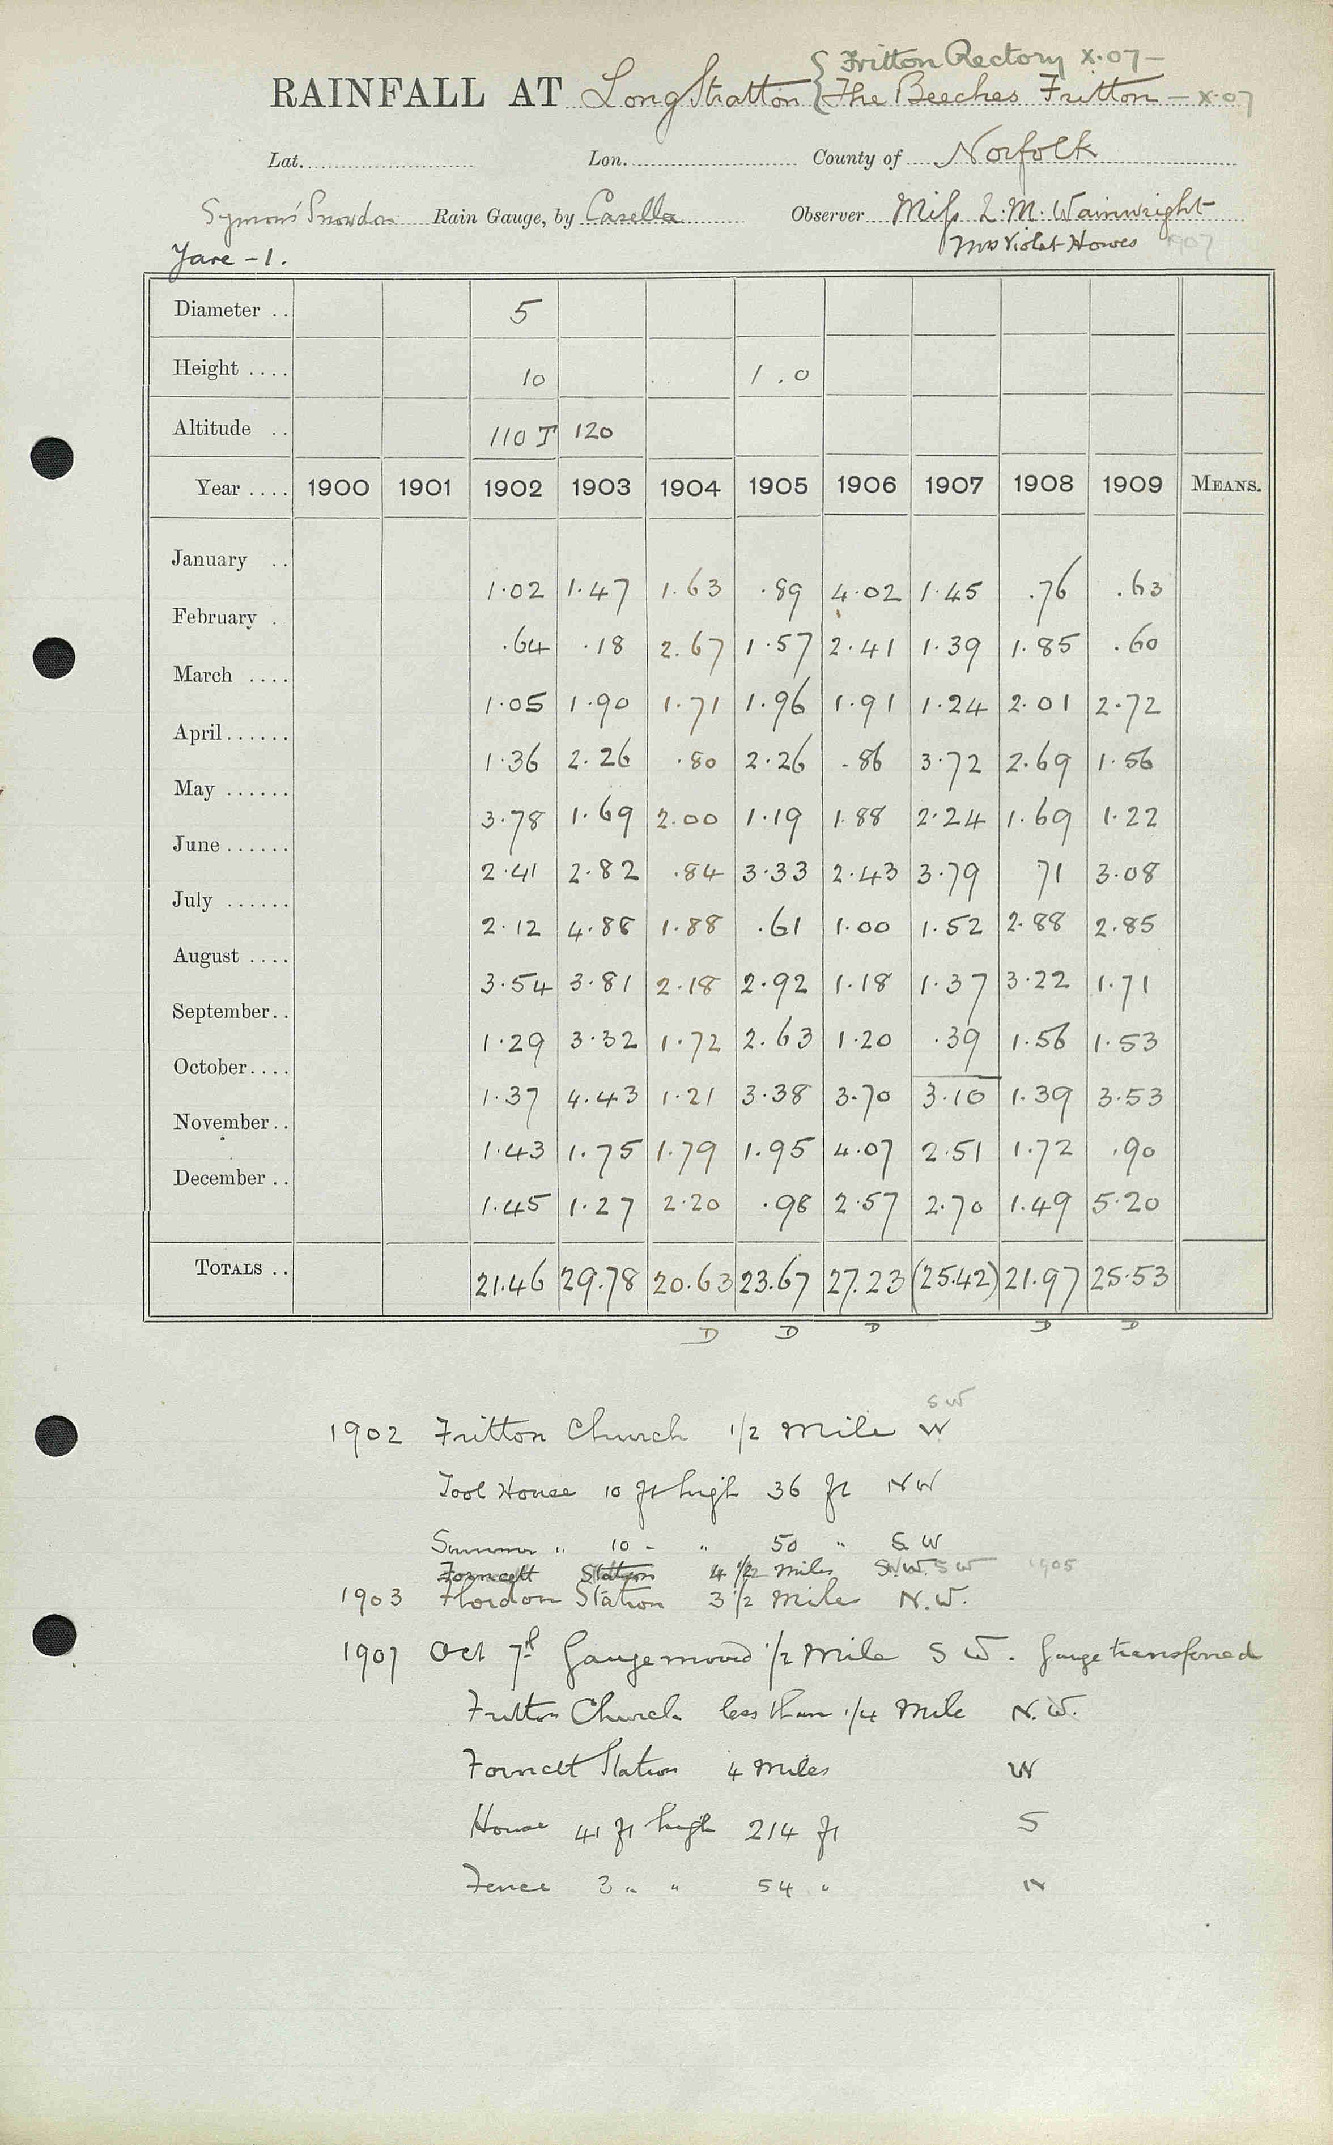 Fritton Rectory X.07 –
RAINFALL AT Long Stratton { The Beeches Fritton – X.07
Lat. Lon. County of Norfolk
Symons' Snowdon Rain Gauge, by Casella Observer Miss L. M. Wainwright
Yare – 1. Mrs Violet Howes 1907
Diameter .. 5
Height .... 10 1.0
Altitude .. 110 T 120
Year .... 1900 1901 1902 1903 1904 1905 1906 1907 1908 1909 MEANS.
January .. 1.02 1.47 1.63 .89 4.02 1.45 .76 .63
February . .64 .18 2.67 1.57 2.41 1.39 1.85 .60
March .... 1.05 1.90 1.71 1.96 1.91 1.24 2.01 2.72
April...... 1.36 2.26 .80 2.26 .86 3.72 2.69 1.56
May ...... 3.78 1.69 2.00 1.19 1.88 2.24 1.69 1.22
June...... 2.41 2.82 .84 3.33 2.43 3.79 71 3.08
July ...... 2.12 4.88 1.88 .61 1.00 1.52 2.88 2.85
August .... 3.54 3.81 2.18 2.92 1.18 1.37 3.22 1.71
September.. 1.29 3.32 1.72 2.63 1.20 .39 1.56 1.53
October.... 1.37 4.43 1.21 3.38 3.70 3.10 1.39 3.53
November.. 1.43 1.75 1.79 1.95 4.07 2.51 1.72 .90
December .. 1.45 1.27 2.20 .98 2.57 2.70 1.49 5.20
TOTALS .. 21.46 29.78 20.63 23.67 27.23 (25.42) 21.97 25.53
D D D D D
SW
1902 Fritton Church 1/2 Mile W
Tool House 10 ft high 36 ft NW
Summer " 10 " " 50 " S W
Forncett Station 4 1/2 miles SW 1905
1903 Flordon Station 3 1/2 Miles N.W.
1907 Oct 7th Gauge moved 1/2 Mile S W. Gauge transferred
Fritton Church less than 1/4 Mile N.W.
Forncett Station 4 Miles W
House 41 ft high 214 ft S
Fence 3 " " 54 " N